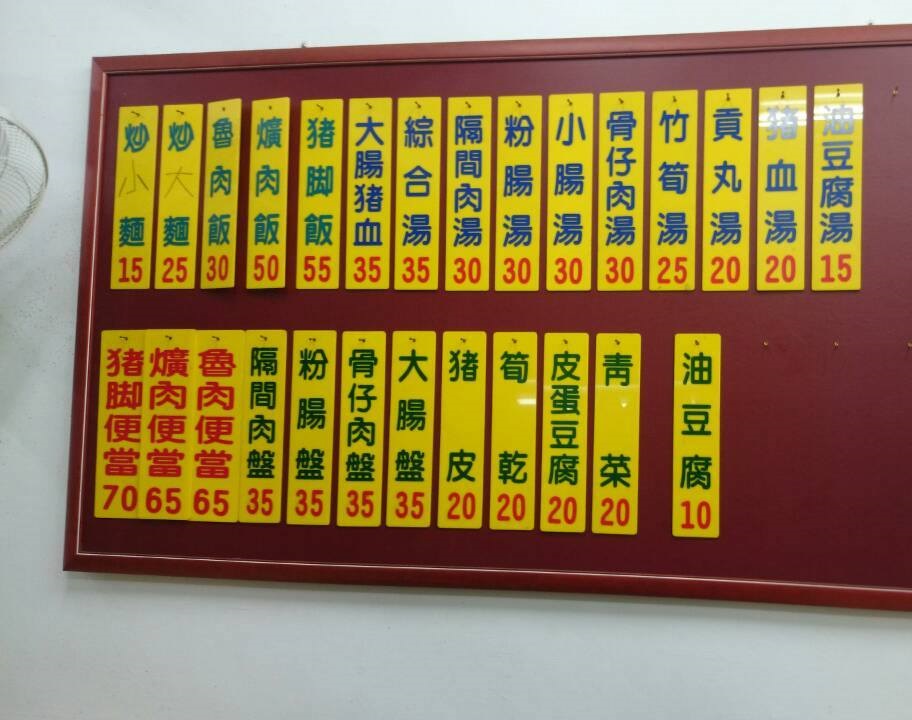 炒小麵 15
炒大麵 25
魯肉飯 30
爌肉飯 50
猪脚飯 55
大腸猪血 35
綜合湯 35
隔間肉湯 30
粉腸湯 30
小腸湯 30
骨仔肉湯 30
竹筍湯 25
貢丸湯 20
猪血湯 20
油豆腐湯 15
猪脚便當 70
爌肉便當 65
魯肉便當 65
隔間肉盤 35
粉腸盤 35
骨仔肉盤 35
大腸盤 35
猪皮 20
筍乾 20
皮蛋豆腐 20
青菜 20
油豆腐 10